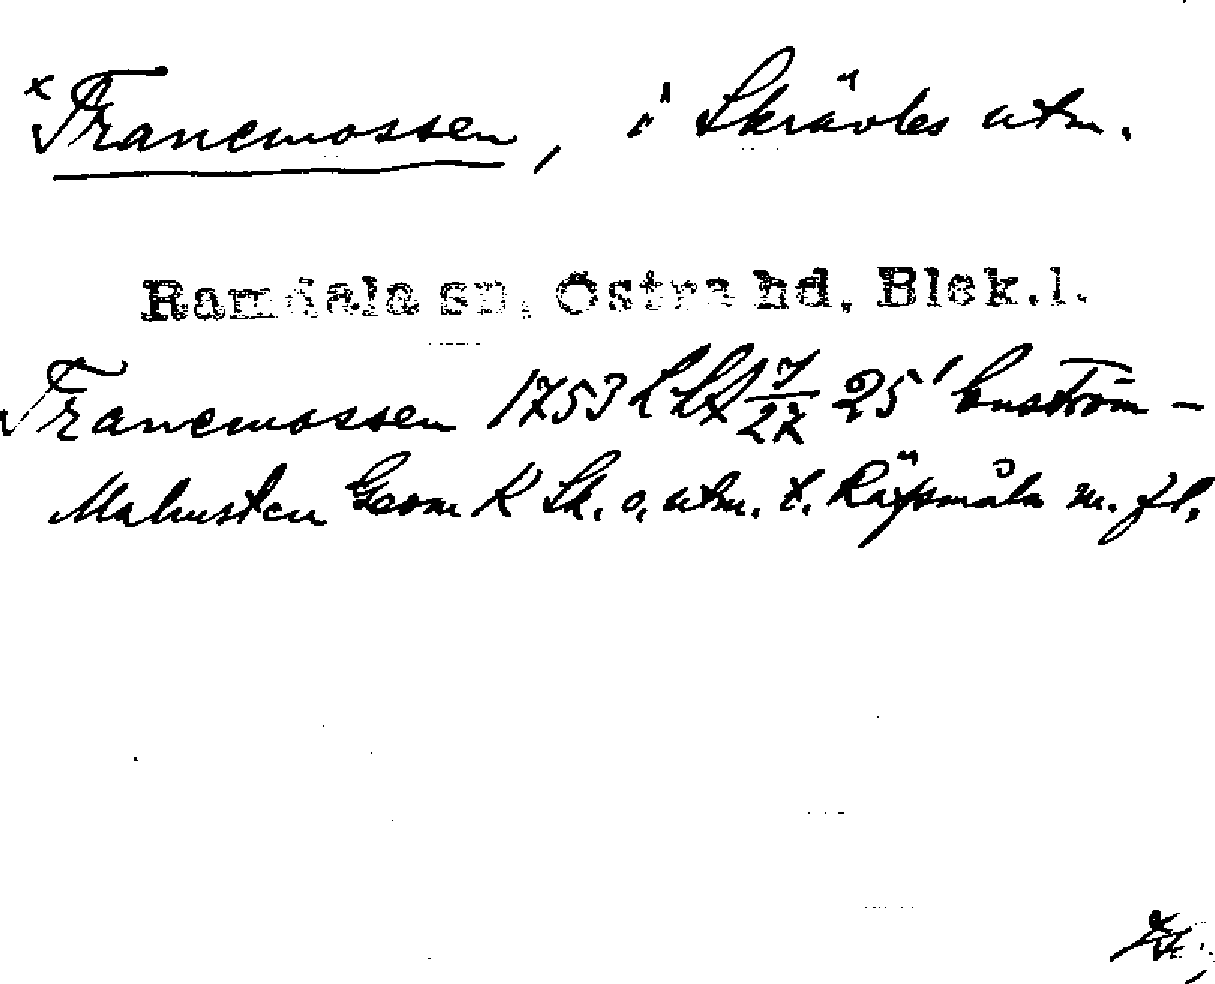 × Tranemossen, i Skrävles utm.
Ramdala sn, Östra hd, Blek.l.
Tranemossen 1753 L 7/27 25' Enström –
Malmsten Geom K Sk. o. utm. t. Räfsmåla m. fl.